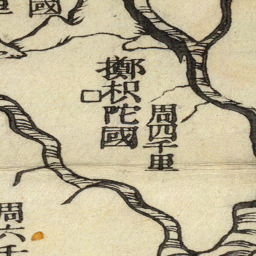 國
擲枳陀國
周四千里
周六千